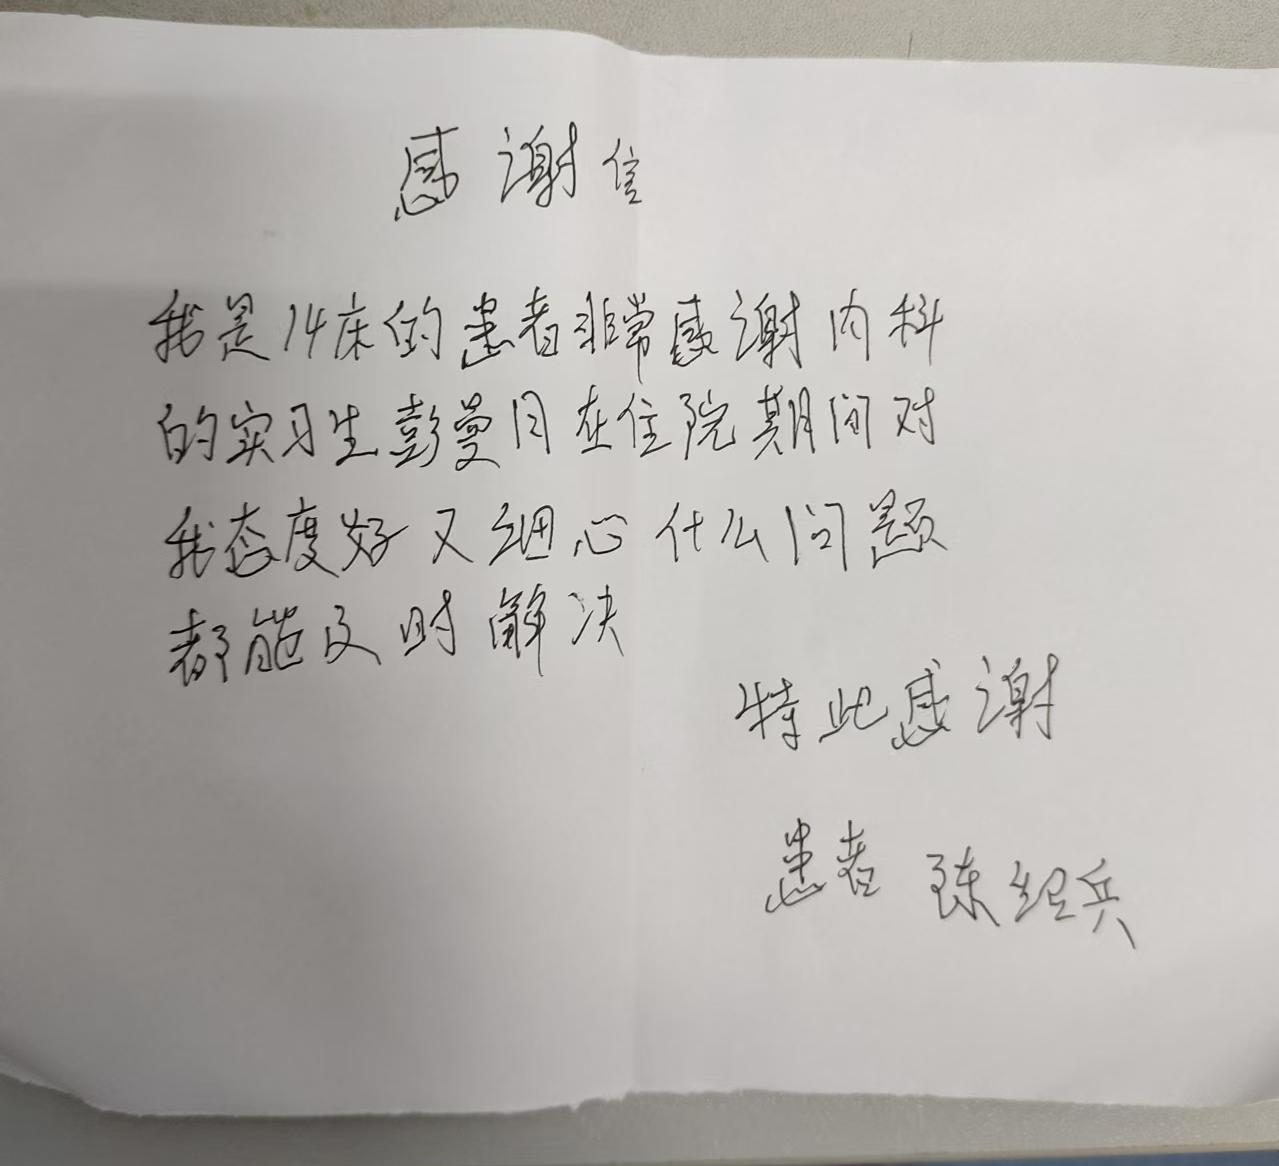 感谢信
我是14床的患者非常感谢内科
的实习生彭曼月在住院期间对
我态度好又细心什么问题
都能及时解决
特此感谢
患者 陈绍兵